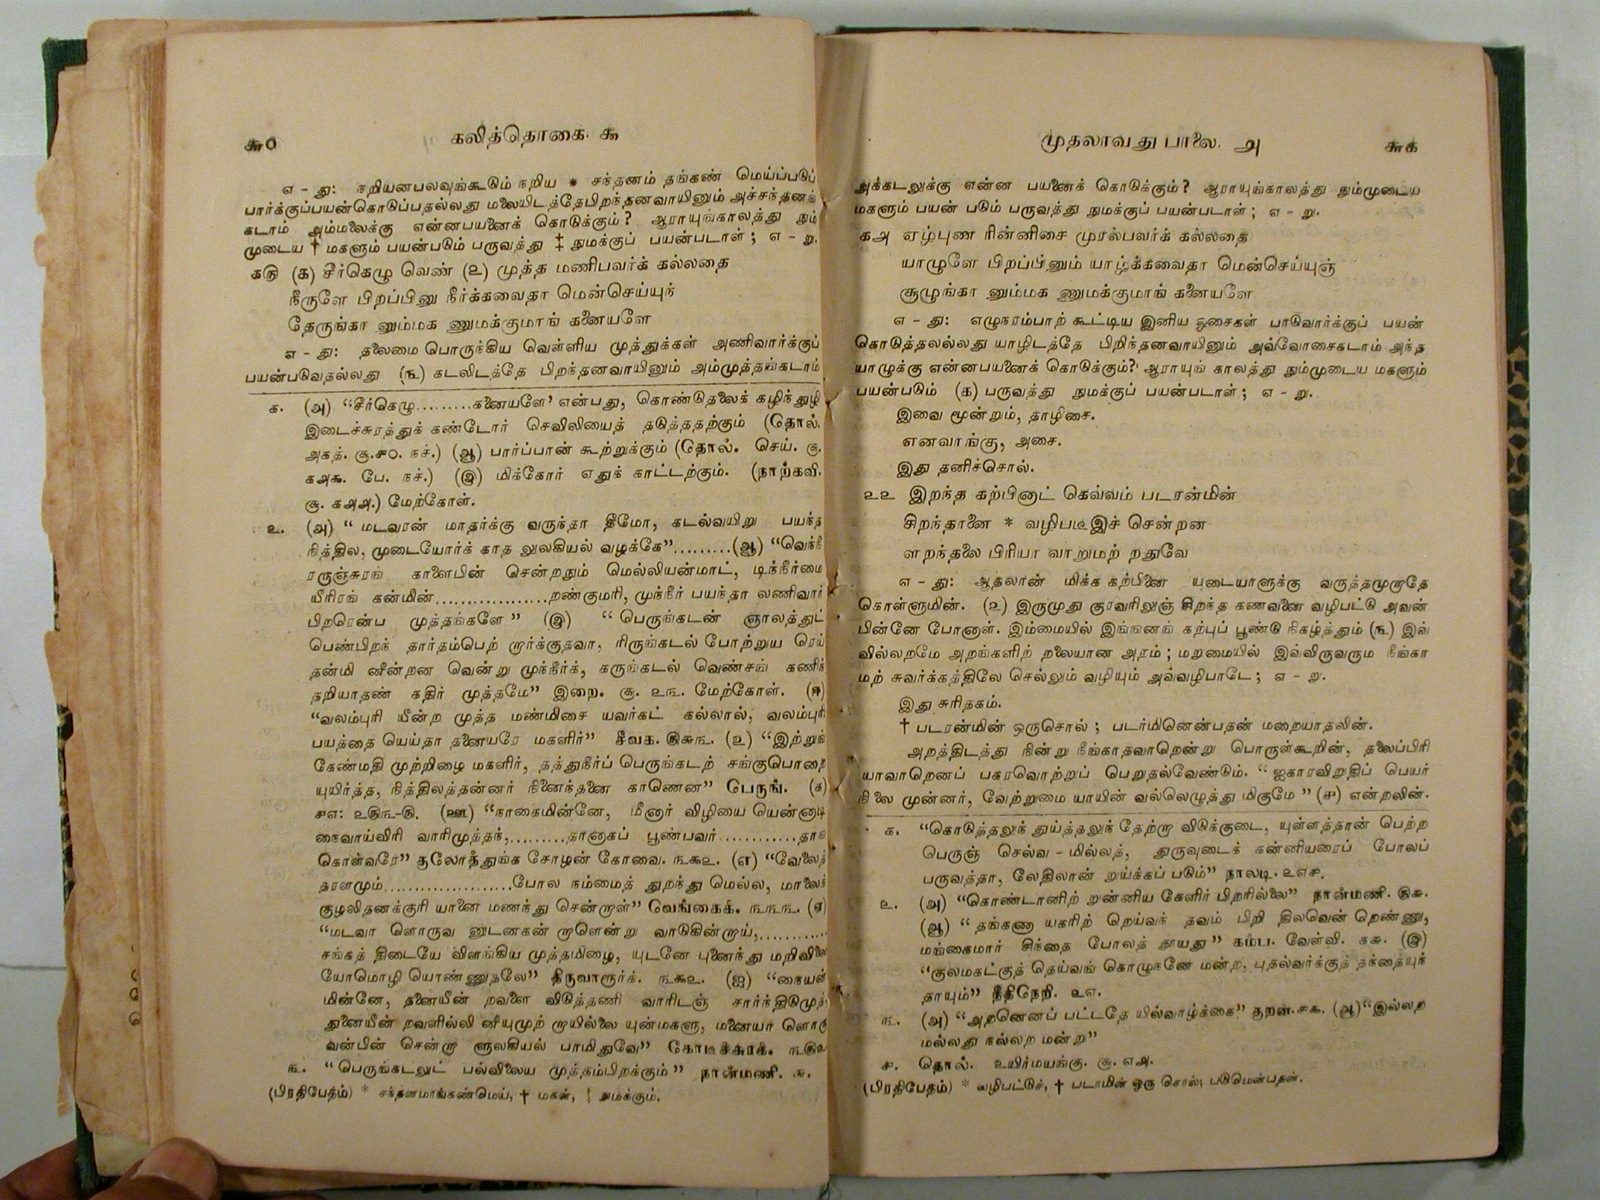 ௬௦
கலித்தொகை. ௬
எ - து: நறியனபலவுங்கூடும் நறிய * சந்தனம் தங்கண் மெய்ப்படுப்
பார்க்குப்பயன்கொடுப்பதல்லது மலையிடத்தேபிறந்தனவாயினும் அச்சந்தனங்
கடாம் அம்மலைக்கு என்னபயனைக் கொடுக்கும்? ஆராயுங்காலத்து நும்
முடைய † மகளும் பயன்படும் பருவத்து ‡ நுமக்குப் பயன்படாள்; எ - று.
கரு (க) சீர்கெழு வெண் (உ) முத்த மணிபவர்க் கல்லதை
நீருளே பிறப்பினு நீர்க்கவைதா மென்செய்யுந்
தேருங்கா னும்மக ணுமக்குமாங் கனையளே
எ - து: தலைமை பொருந்திய வெள்ளிய முத்துக்கள் அணிவார்க்குப்
பயன்படுவதல்லது (௩) கடலிடத்தே பிறந்தனவாயினும் அம்முத்தங்கடாம்
க. (அ) “சீர்கெழு.........கனையளே’ என்பது, கொண்டுதலைக் கழிந்துழி
இடைச்சுரத்துக் கண்டோர் செவிலியைத் தடுத்ததற்கும் (தொல்.
அகத். சூ.௪௦. நச்.) (ஆ) பார்ப்பான் கூற்றுக்கும் (தொல். செய். சூ.
க௮௯. பே. நச்.) (இ) மிக்கோர் எதுக் காட்டற்கும். (நாற்கவி.
சூ. க௮௮.) மேற்கோள்.
உ. (அ) “ மடவரன் மாதர்க்கு வருந்தா தீமோ, கடல்வயிறு பயந்த
நித்தில, முடையோர்க் காத லுலகியல் வழக்கே”.........(ஆ) “வெந்நீ
ரருஞ்சுரங் காளைபின் சென்றநும் மெல்லியன்மாட், டிந்நீர்மை
யீரிரங் கன்மின்..................றண்குமரி, முந்நீர் பயந்தா லணிவார்
பிறரென்ப முத்தங்களே ” (இ) “ பெருங்கடன் ஞாலத்துட்
பெண்பிறந் தார்தம்பெற் றோர்க்குதவா, ரிருங்கடல் போற்றுய ரெய்
தன்மி னீன்றன வென்று முந்நீர்க், கருங்கடல் வெண்சங் கணிந்
தறியாதண் கதிர் முத்தமே” இறை. சூ. ௨௩. மேற்கோள். (ஈ)
“வலம்புரி யீன்ற முத்த மண்மிசை யவர்கட் கல்லால், வலம்புரி
பயத்தை யெய்தா தனையரே மகளிர்” சீவக. ௫௬௩. (உ) “இற்றுங்
கேண்மதி முற்றிழை மகளிர், தத்துநீர்ப் பெருங்கடற் சங்குபொறை
யுயிர்த்த, நித்திலத்தன்னர் நினைந்தனை காணென” பெருங். (க)
௪௭: ௨௫௩-௫. (ஊ) “நாகைமின்னே, மீனார் விழியை யென்னாடி
நைவாய்விரி வாரிமுத்தந்,.........தானாகப் பூண்பவர்............தாங்
கொள்வரே” குலோத்துங்க சோழன் கோவை. ௩௬௨. (எ) “வேலைத்
தரளமும்.....................போல நம்மைத் துறந்து மெல்ல, மாலைக்
குழலிதனக்குரி யானை மணந்து சென்றாள்” வேங்கைக். ௩௩௩. (ஏ)
“மடவா ளொருவ னுடனகன் றாளென்று வாடுகின்றாய்,...........
சங்கத் திடையே விளங்கிய முத்தமிழை, யுடனே புனைந்து மறிவிலை
யோமொழி யொண்ணுதலே” திருவாரூர்க். ௩௬௨. (ஐ) “நையன்
மின்னே, தனையீன் றவளை விடுத்தணி வாரிடஞ் சார்ந்திடுமுத்
துனையீன் றவளில்லி னீயுமுற் றாயில்லை யுன்மகளு, மனையா ளொரு
வன்பின் சென்றா ளுலகியல் பாமிதுவே” கோடீச்சுரக்.
௩. “ பெருங்கடலுட் பல்விலைய முத்தம்பிறக்கும் ” நான்மணி. ௬.
(பிரதிபேதம்) * சந்தனமாங்கண்மெய், † மகள், ‡ நமக்கும்.
முதலாவது பாலை. ௮
௬௧
அக்கடலுக்கு என்ன பயனைக் கொடுக்கும்? ஆராயுங்காலத்து நும்முடைய
மகளும் பயன் படும் பருவத்து நுமக்குப் பயன்படாள்; எ - று.
க௮ ஏழ்புண ரின்னிசை முரல்பவர்க் கல்லதை
யாழுளே பிறப்பினும் யாழ்க்கவைதா மென்செய்யுஞ்
சூழுங்கா னும்மக ணுமக்குமாங் கனையளே
எ - து: எழுநரம்பாற் கூட்டிய இனிய ஓசைகள் பாடுவார்க்குப் பயன்
கொடுத்தலல்லது யாழிடத்தே பிறிந்தனவாயினும் அவ்வோசைகடாம் அந்த
யாழுக்கு என்னபயனைக் கொடுக்கும்? ஆராயுங் காலத்து நும்முடைய மகளும்
பயன்படும் (க) பருவத்து நுமக்குப் பயன்படாள்; எ - று.
இவை மூன்றும், தாழிசை.
எனவாங்கு, அசை.
இது தனிச்சொல்.
௨௨ இறந்த கற்பினாட் கெவ்வம் படரன்மின்
சிறந்தானை * வழிபடீஇச் சென்றன
ளறந்தலை பிரியா வாறுமற் றதுவே
எ - து: ஆதலான் மிக்க கற்பினை யுடையாளுக்கு வருத்தமுறாதே
கொள்ளுமின். (உ) இருமுது குரவரிலுஞ் சிறந்த கணவனை வழிபட்டு அவன்
பின்னே போனாள். இம்மையில் இங்ஙனங் கற்புப் பூண்டு நிகழ்த்தும் (௩) இவ்
வில்லறமே அறங்களிற் றலையான அறம்; மறுமையில் இவ்விருவரும் நீங்கா
மற் சுவர்க்கத்திலே செல்லும் வழியும் அவ்வழிபாடே; எ - று.
இது சுரிதகம்.
† படரன்மின் ஒருசொல்; படர்மினென்பதன் மறையாதலின்.
அறத்திடத்து நின்று நீங்காதவாறென்று பொருள்கூறின், தலைப்பிரி
யாவாறெனப் பகரவொற்றுப் பெறுதல்வேண்டும். “ ஐகாரவிறுதிப் பெயர்
நிலை முன்னர், வேற்றுமை யாயின் வல்லெழுத்து மிகுமே ” (௪) என்றலின்.
க. “கொடுத்தலுந் துய்த்தலுந் தேற்றா விடுக்குடை, யுள்ளத்தான் பெற்ற
பெருஞ் செல்வ - மில்லத், துருவுடைக் கன்னியரைப் போலப்
பருவத்தா, லேதிலான் றுய்க்கப் படும்” நாலடி. ௨௭௪.
உ. (அ) “கொண்டானிற் றன்னிய கேளிர் பிறரில்லை” நான்மணி. ௫௬.
(ஆ) “ தங்கணா யகரிற் றெய்வந் தவம் பிறி திலவென் றெண்ணு,
மங்கைமார் சிந்தை போலத் தூயது” கம்ப. வேள்வி. ௬௬. (இ)
“குலமகட்குத் தெய்வங் கொழுநனே மன்ற, புதல்வர்க்குத் தந்தையுந்
தாயும்” நீதிநெறி. ௨௭.
௩. (அ) “அறனெனப் பட்டதே யில்வாழ்க்கை” குறள்.௪௯. (ஆ)“இல்லற
மல்லது நல்லற மன்று”
௪. தொல். உயிர்மயங்கு. சூ. எ௮.
(பிரதிபேதம்) * வழிபட்டுச், † படாமின் ஒரு சொல்; படுமென்பதன்.